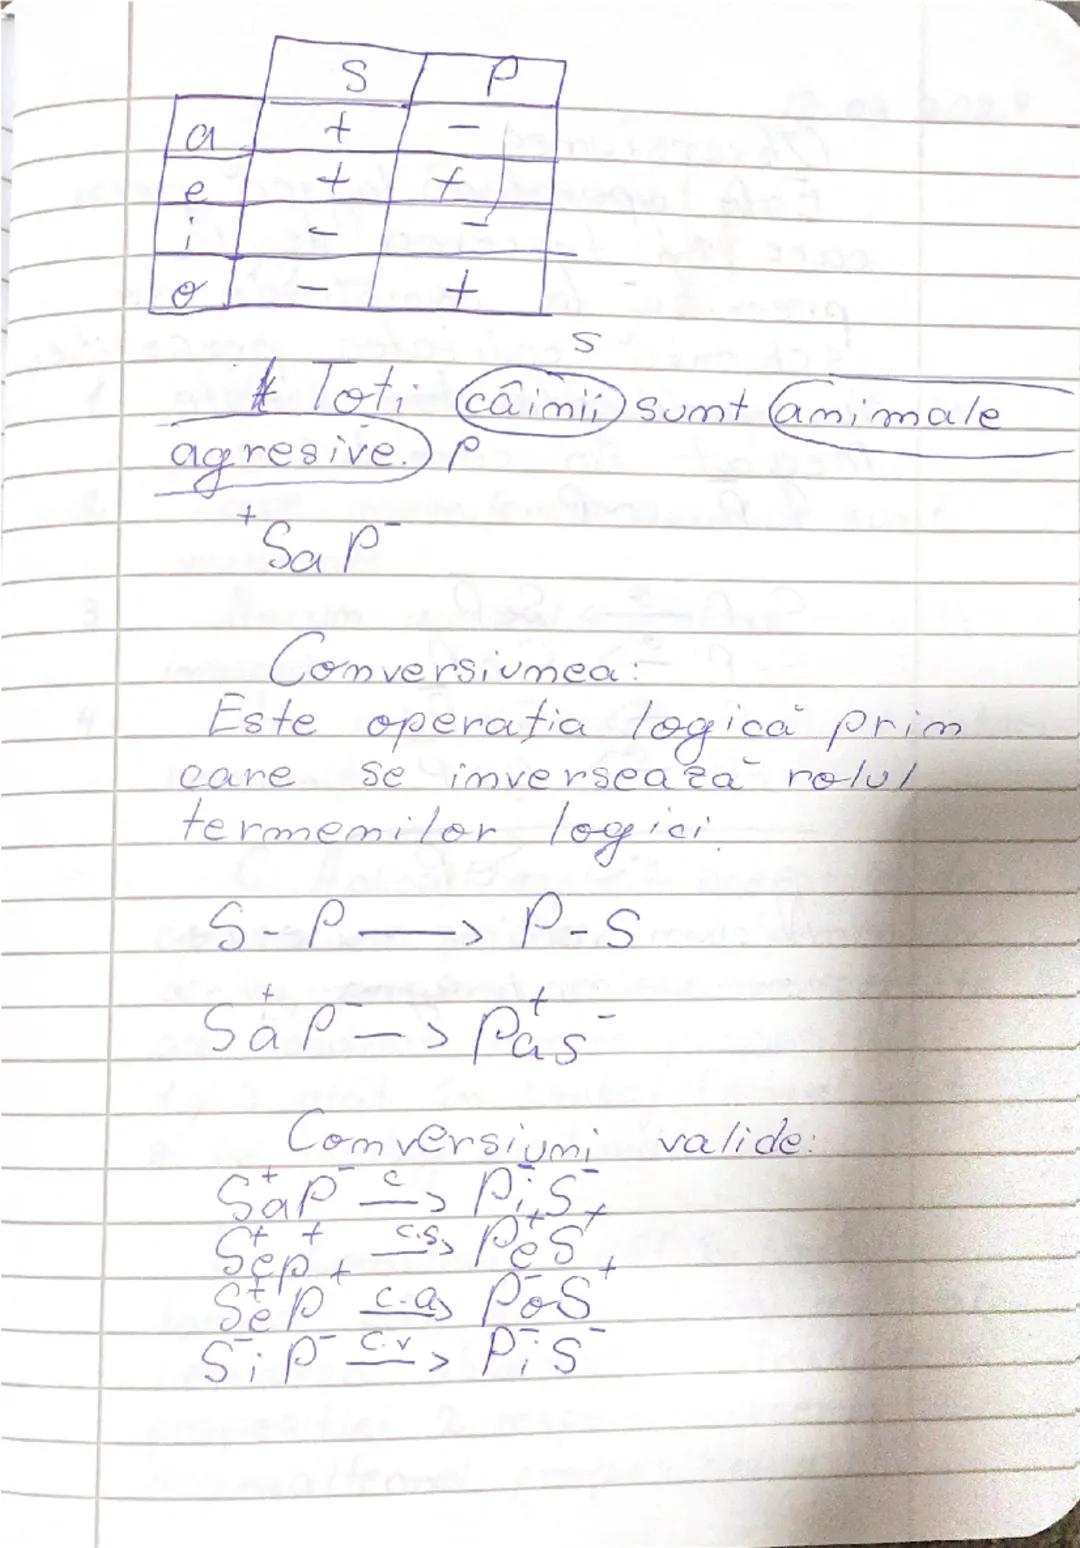 S P
a + -
e + +
i - -
o - +
S
Toti câinii sunt animale
agresive. P
+SaP-
Conversiunea:
Este operația logică prin
care se inversează rolul
termenilor logici.
S-P → P-S
S+aP- → Pa+S-
Conversiuni valide:
S+aP- c→ P-iS-
S+eP+ c.s→ P+eS+
S+eP+ c.a→ P-oS+
S-iP- c.v→ P-iS-